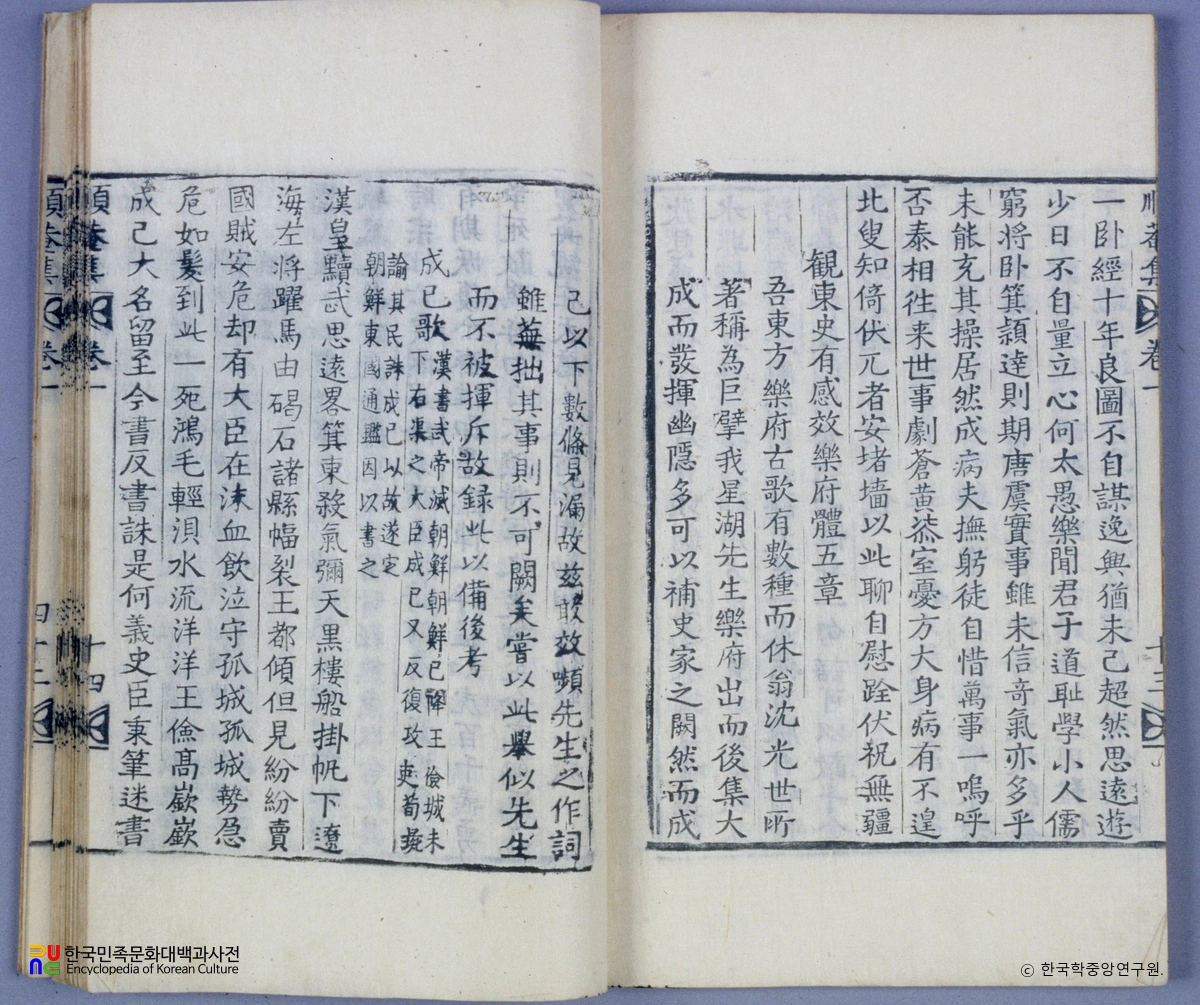 順菴集 卷一 十三
一卧經十年良圖不自謀逸興猶未已超然思遠遊
少日不自量立心何太愚樂聞君子道耻學小人儒
窮將卧箕頴達則期唐虞實事雖未信竒氣亦多乎
未能充其操居然成病夫撫躬徒自惜萬事一嗚呼
否泰相徃来世事劇蒼黃恭室憂方大身病有不遑
北叟知倚伏兀者安堵墻以此聊自慰跧伏祝無疆
觀東史有感效樂府體五章
吾東方樂府古歌有數種而休翁沈光世所
著稱為巨擘我星湖先生樂府出而後集大
成而發揮幽隱多可以補史家之闕然而成
己以下數條見漏故兹敢效嚬先生之作詞
雖蕪拙其事則不可闕矣嘗以此擧似先生
而不被揮斥故録此以備後考
成已歌
漢書武帝滅朝鮮朝鮮已降王儉城未
下右渠之大臣成已又反復攻吏荀彘
諭其民誅成已以故遂定
朝鮮東國通鑑因以書之
漢皇黷武思遠畧箕東殺氣彌天黑樓船掛帆下遼
海左將躍馬由碣石諸縣幅裂王都傾但見紛紛賣
國賊安危却有大臣在沫血飲泣守孤城孤城勢急
危如髮到此一死鴻毛輕浿水流洋洋王儉髙嶔嶔
成己大名留至今書反書誅是何義史臣秉筆迷書
順菴集 卷一 十四
順菴集 卷一 四十二
한국민족문화대백과사전
Encyclopedia of Korean Culture
© 한국학중앙연구원.